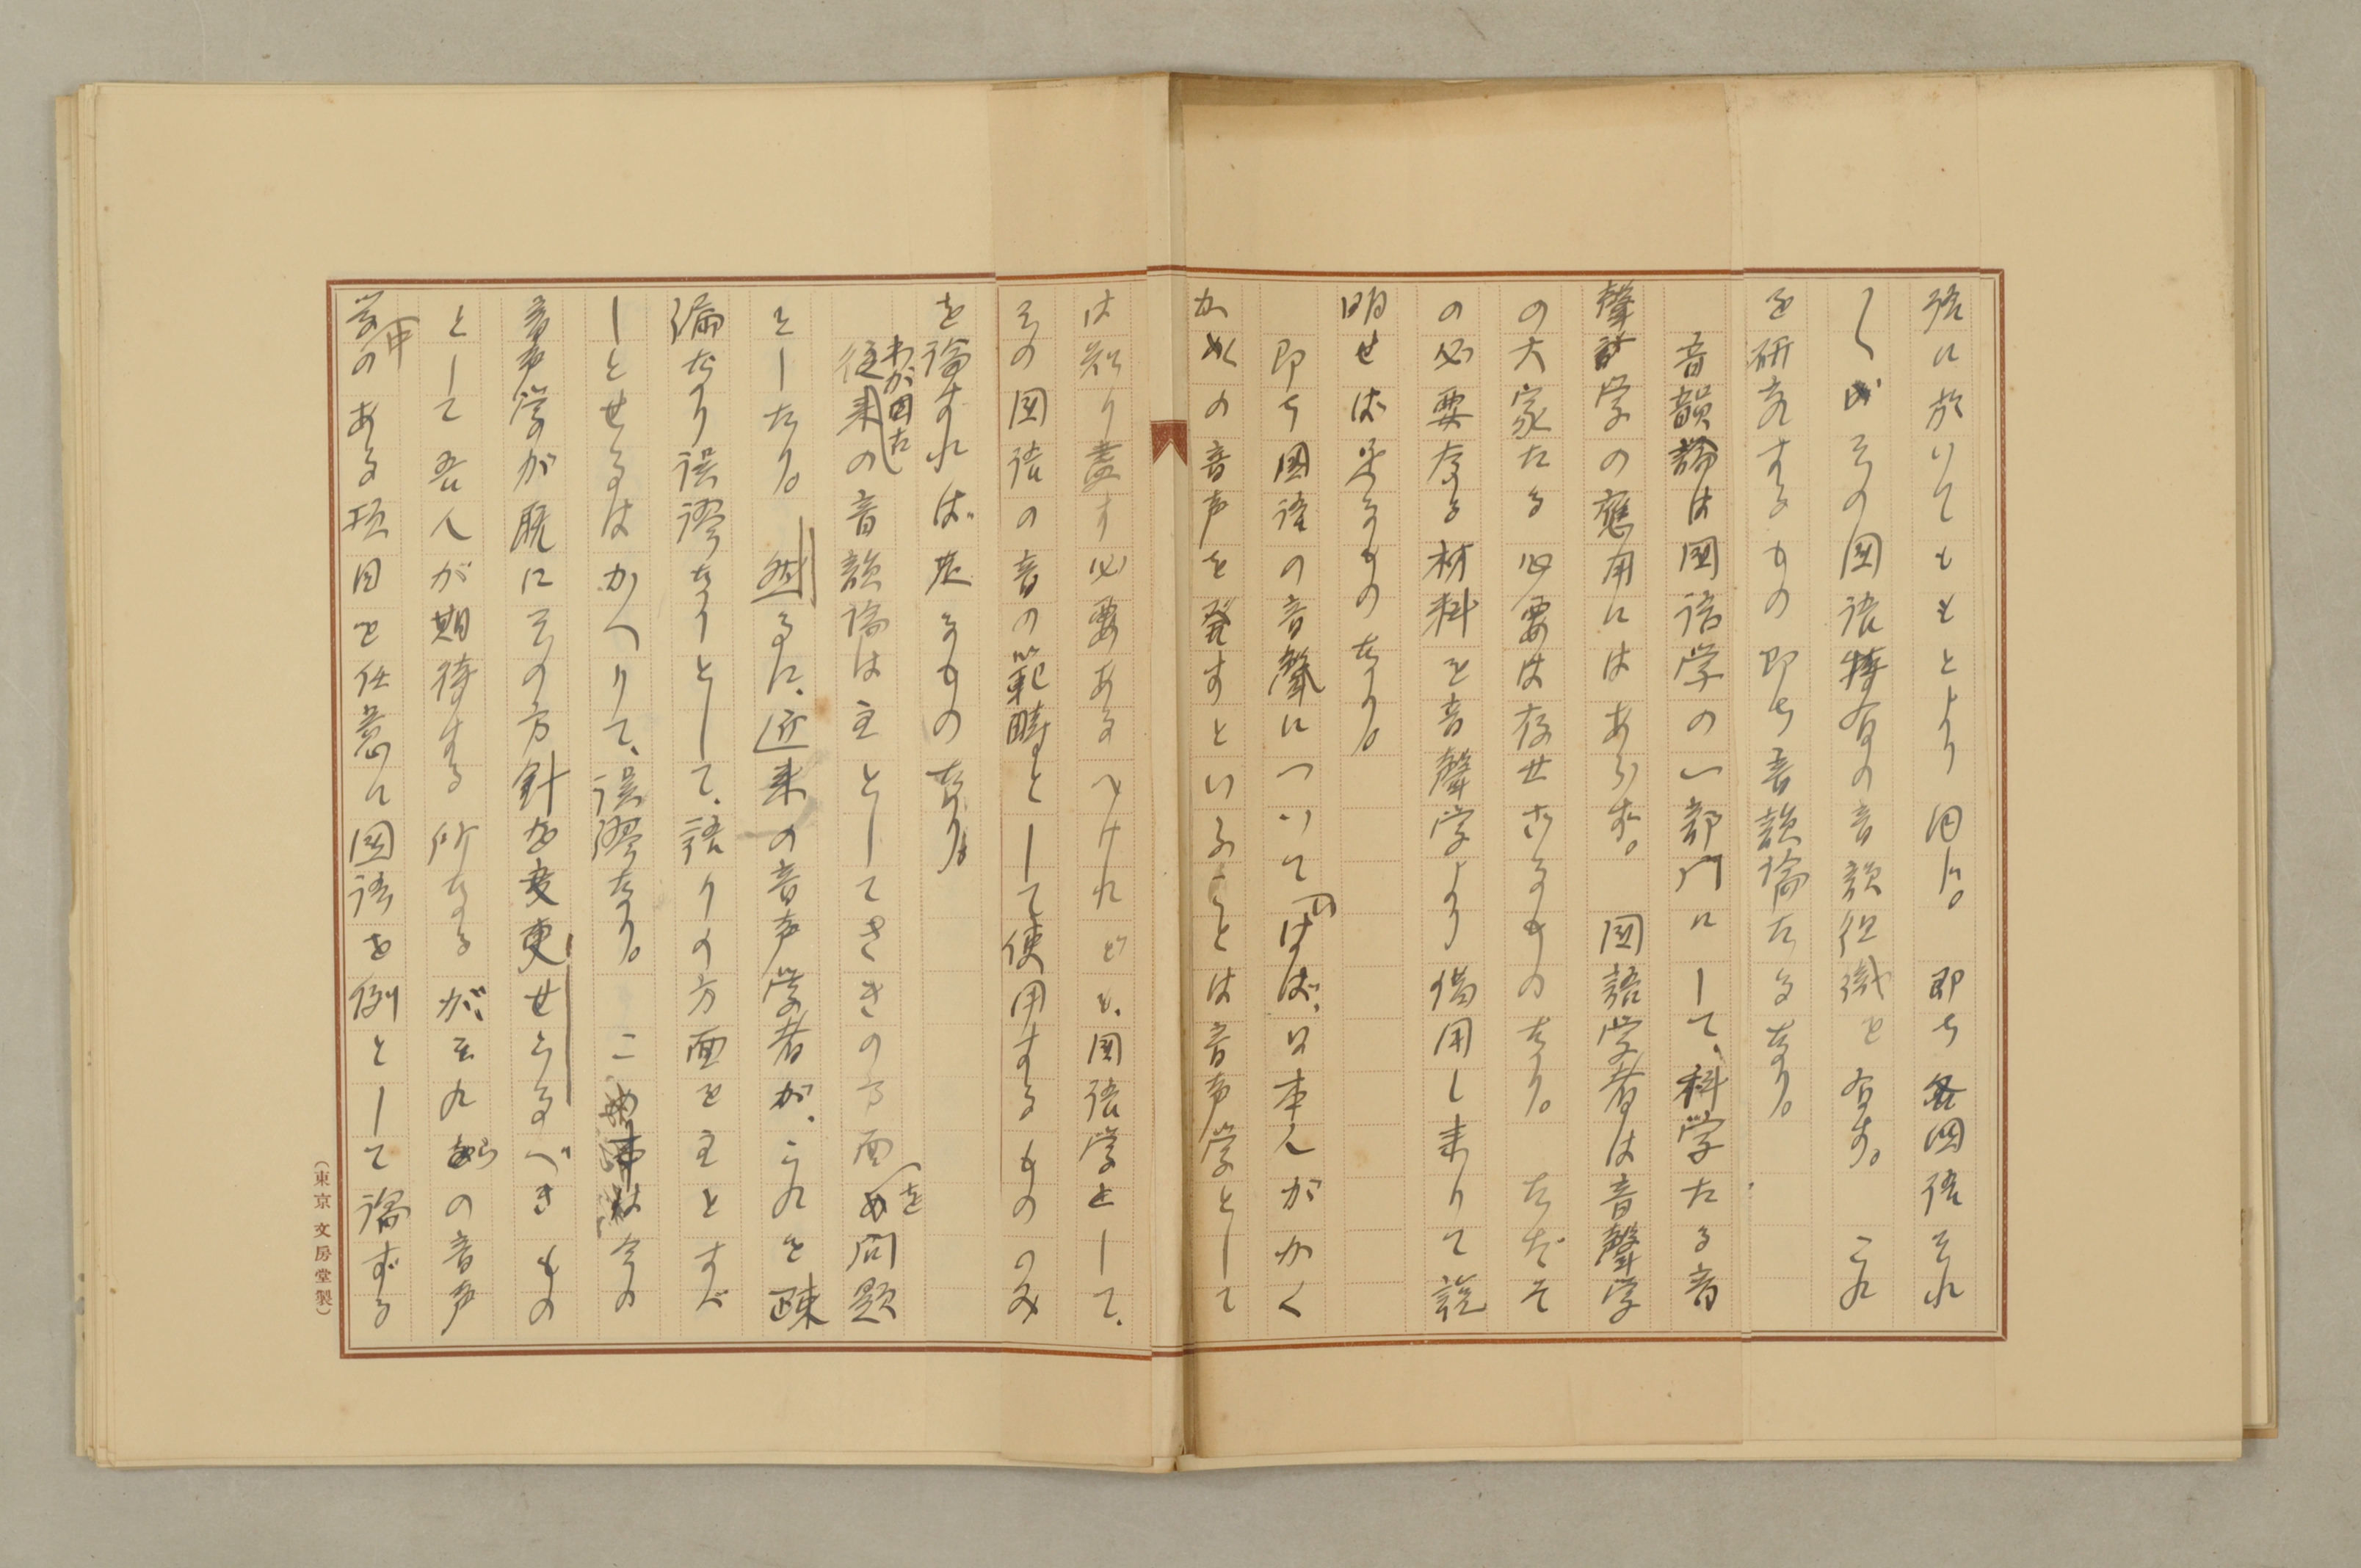 語に於いてももとより同じ。即ち各国語それ
〲その国語特有の音韻組織を有す。これ
を研究するもの即ち音韻論たるなり。
音韻論は国語学の一部門にして、科学たる音
聲学の應用にはあらず。国語学者は音聲学
の大家たる必要は存せざるものなり。ただそ
の必要なる材料を音聲学より借用し来りて説
明せば足るものなり。
即ち国語の音聲についていはば、日本人がかく
かくの音声を発すといふことは音声学として
は知り盡す必要あるべけれども、国語学として、
その国語の音の範疇として使用するもののみ
を論ずれば足るものなり。
従来わが国の音韻論は主としてききの方面を問題
としたり。然るに、近来の音声学者が、これを疎
漏なり誤謬なりとして、語りの方面を主とすべ
しとせるはかへりて、誤謬なり。こは今の
音声学が既にその方針を変更せらるべきもの
として吾人が期待する所なるがそれらの音声
学の中のある項目を任意に国語を例として論ずる
(東京 文房堂製)